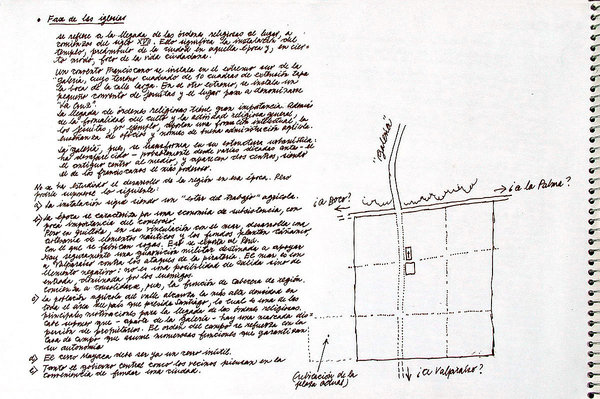 • Fase de las iglesias
se refiere a la llegada de las órdenes religiosas al lugar, a
comienzos del siglo XVII. Esto significa la instalación del
templo, preámbulo de la ciudad en aquella época y, en cier-
to modo, foco de la vida ciudadana.
Un convento Franciscano se instala en el extremo sur de la
Galería, cuyo terreno cuadrado de 10 cuadras de extensión tapa
la boca de la calle larga. En el otro extremo, se instala un
pequeño convento de Jesuitas y el lugar pasa a denominarse
"La Cruz".
La llegada de órdenes religiosas tiene gran importancia. Además
de la formalidad del culto y la actividad religiosa general,
los Jesuitas, por ejemplo, aportan una formación intelectual, la
enseñanza de oficios y normas de buena administración agrícola.
La Galería, pues, se transforma en su estructura urbanística:
ha desaparecido - probablemente desde varias décadas antes - el
el antiguo centro al medio, y aparecen dos centros, siendo
el de los franciscanos el más poderoso.
No se ha estudiado el desarrollo de la región en esa época. Pero
podría suponerse lo siguiente:
a) la instalación sigue siendo un "estar del trabajo" agrícola.
b) la época se caracteriza por una economía de subsistencia, con
poca importancia del comercio.
Pero en Quillota, en su vinculación con el mar, desarrolla una
artesanía de elementos náuticos y los fundos plantan cáñamo
con el que se fabrican sogas. Esto se exporta al Perú.
Hay seguramente una guarnición militar destinada a apoyar
a Valparaíso contra los ataques de la piratería. El mar es un
elemento negativo: no es una posibilidad de salida sino de
entrada, dominada por los enemigos.
Comienza a consolidarse, pues, la función de cabecera de región.
c) la población agrícola del valle alcanza la más alta densidad en
todo el área del país que preside Santiago, lo cual es una de las
principales motivaciones para la llegada de las órdenes religiosas.
Cabe suponer que - aparte de la Galería - hay una marcada dis-
persión de propietarios. El orden del campo se refuerza en la
casa de campo que asume numerosas funciones que garantizan
su autonomía
d) El cerro Mayaca debe ser ya un cerro inútil.
e) Tanto el gobierno central como los vecinos piensan en la
conveniencia de fundar una ciudad.
"Galería"
¿a Boco?
¿a la Palma?
Ubicación de la
plaza actual
¿a Valparaíso?